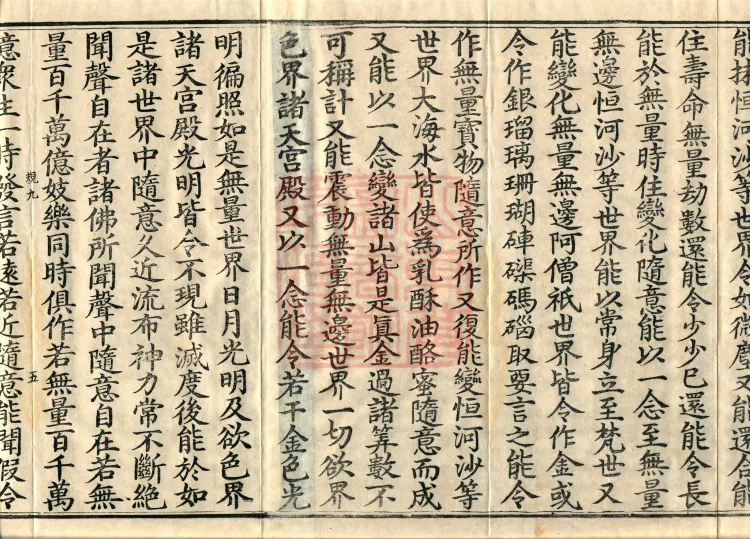 能抹恒河沙等世界令如微塵又能還合能
住壽命無量劫數還能令少少已還能令長
能於無量時住變化隨意能以一念至無量
無邊恒河沙等世界能以常身立至梵世又
能變化無量無邊阿僧祇世界皆令作金或
令作銀瑠璃珊瑚硨磲碼碯取要言之能令
作無量寶物隨意所作又復能變恒河沙等
世界大海水皆使爲乳酥油酪蜜隨意而成
又能以一念變諸山皆是真金過諸筭數不
可稱計又能震動無量無邊世界一切欲界
色界諸天宮殿又以一念能令若干金色光
明徧照如是無量世界日月光明及欲色界
諸天宮殿光明皆令不現雖滅度後能於如
是諸世界中隨意久近流布神力常不斷絕
聞聲自在者諸佛所聞聲中隨意自在若無
量百千萬億妓樂同時俱作若無量百千萬
規九
五
億衆生一時發言若遠若近隨意能聞假令